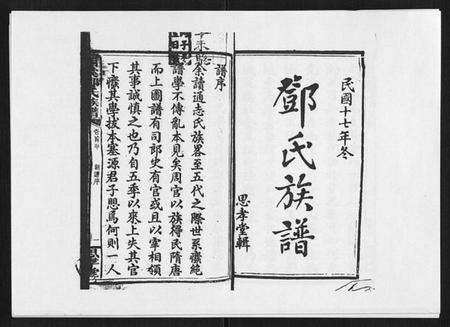 民國十七年冬
鄧氏族譜
思孝堂輯
譜序
余讀通志氏族畧至五代之際世系殘紀
譜學不傳亂本見矣周官以族得民隋唐
而上圖譜有司郎史有官或且以宰相領
其事誠慎之也乃自五季以來上失其官
下癈其學拔本塞源君子愳焉何則一人